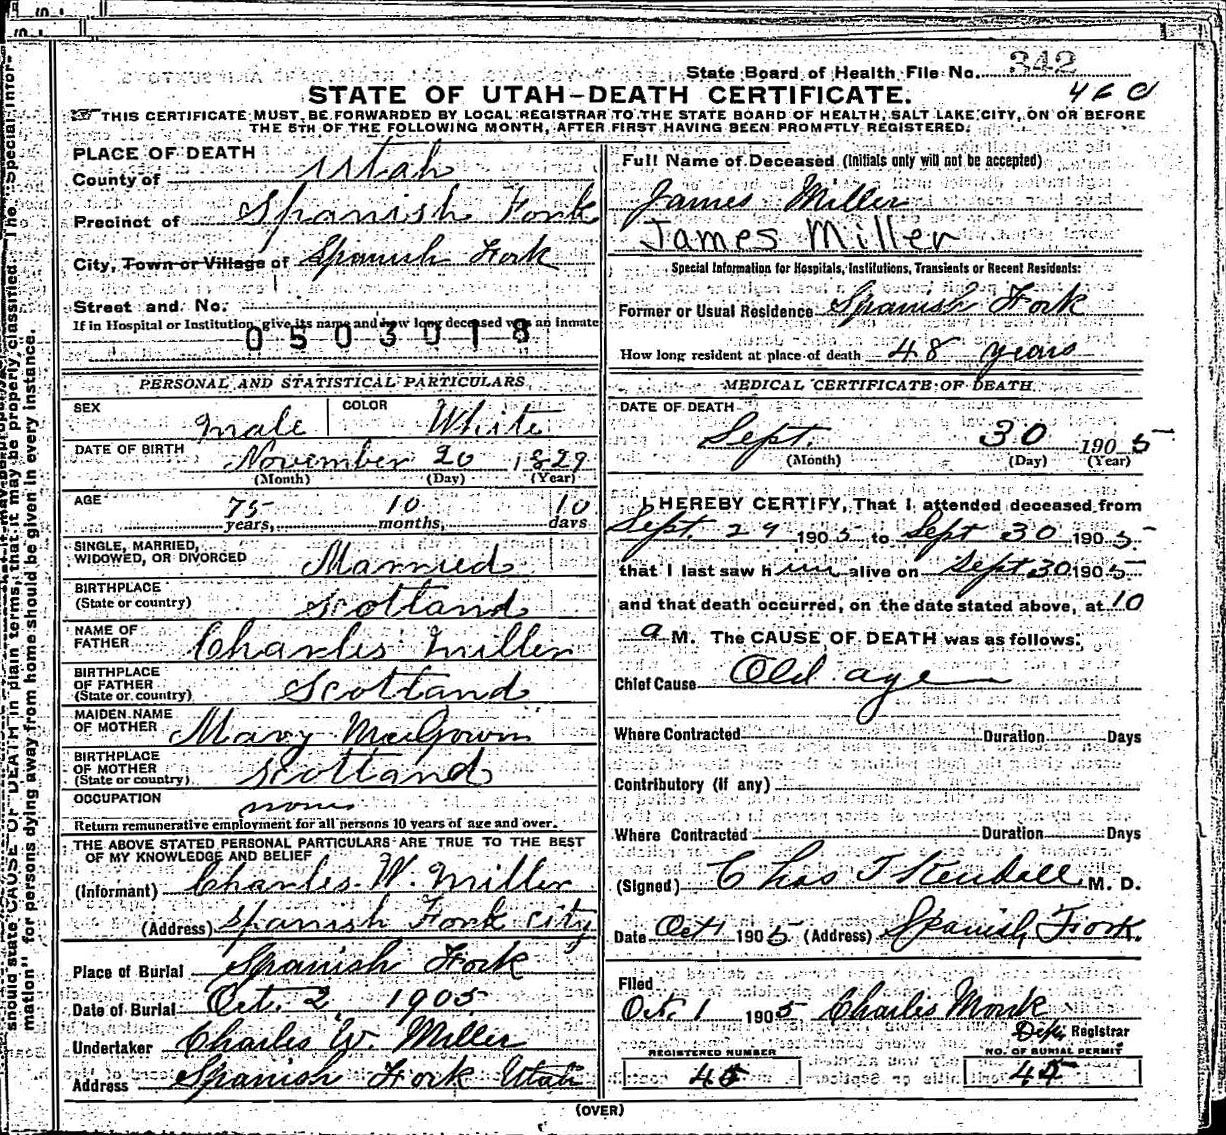 State Board of Health File No. 342
460
STATE OF UTAH-DEATH CERTIFICATE.
THIS CERTIFICATE MUST BE FORWARDED BY LOCAL REGISTRAR TO THE STATE BOARD OF HEALTH, SALT LAKE CITY, ON OR BEFORE
THE 5TH OF THE FOLLOWING MONTH, AFTER FIRST HAVING BEEN PROMPTLY REGISTERED.
PLACE OF DEATH
County of Utah
Precinct of Spanish Fork
City, Town or Village of Spanish Fork
Street and No.
If in Hospital or Institution, give its name and how long deceased was an inmate
0503018
PERSONAL AND STATISTICAL PARTICULARS
SEX Male COLOR White
DATE OF BIRTH November 20 1829
(Month) (Day) (Year)
AGE 75 10 10
years, months, days
SINGLE, MARRIED,
WIDOWED, OR DIVORCED Married
BIRTHPLACE
(State or country) Scotland
NAME OF
FATHER Charles Miller
BIRTHPLACE
OF FATHER
(State or country) Scotland
MAIDEN NAME
OF MOTHER Mary McGowin
BIRTHPLACE
OF MOTHER
(State or country) Scotland
OCCUPATION none
Return remunerative employment for all persons 10 years of age and over.
THE ABOVE STATED PERSONAL PARTICULARS ARE TRUE TO THE BEST
OF MY KNOWLEDGE AND BELIEF
(Informant) Charles W. Miller
(Address) Spanish Fork City
Place of Burial Spanish Fork
Date of Burial Oct. 2, 1905
Undertaker Charles W. Miller
Address Spanish Fork Utah
Full Name of Deceased (Initials only will not be accepted)
James Miller
James Miller
Special Information for Hospitals, Institutions, Transients or Recent Residents:
Former or Usual Residence Spanish Fork
How long resident at place of death 48 years
MEDICAL CERTIFICATE OF DEATH
DATE OF DEATH
Sept. 30 1905
(Month) (Day) (Year)
I HEREBY CERTIFY, That I attended deceased from
Sept. 29 1905 to Sept 30 1905
that I last saw him alive on Sept 30 1905
and that death occurred, on the date stated above, at 10
a M. The CAUSE OF DEATH was as follows:
Chief Cause Old age
Where Contracted Duration Days
Contributory (if any)
Where Contracted Duration Days
(Signed) Chas T M. D.
Date Oct 1 1905 (Address) Spanish Fork.
Filed
Oct. 1 1905 Charles Monk
Dep. Registrar
REGISTERED NUMBER NO. OF BURIAL PERMIT
45 45
(OVER)
should state CAUSE OF DEATH in plain terms, that it may be properly classified. The "Special Infor-
mation" for persons dying away from home should be given in every instance.